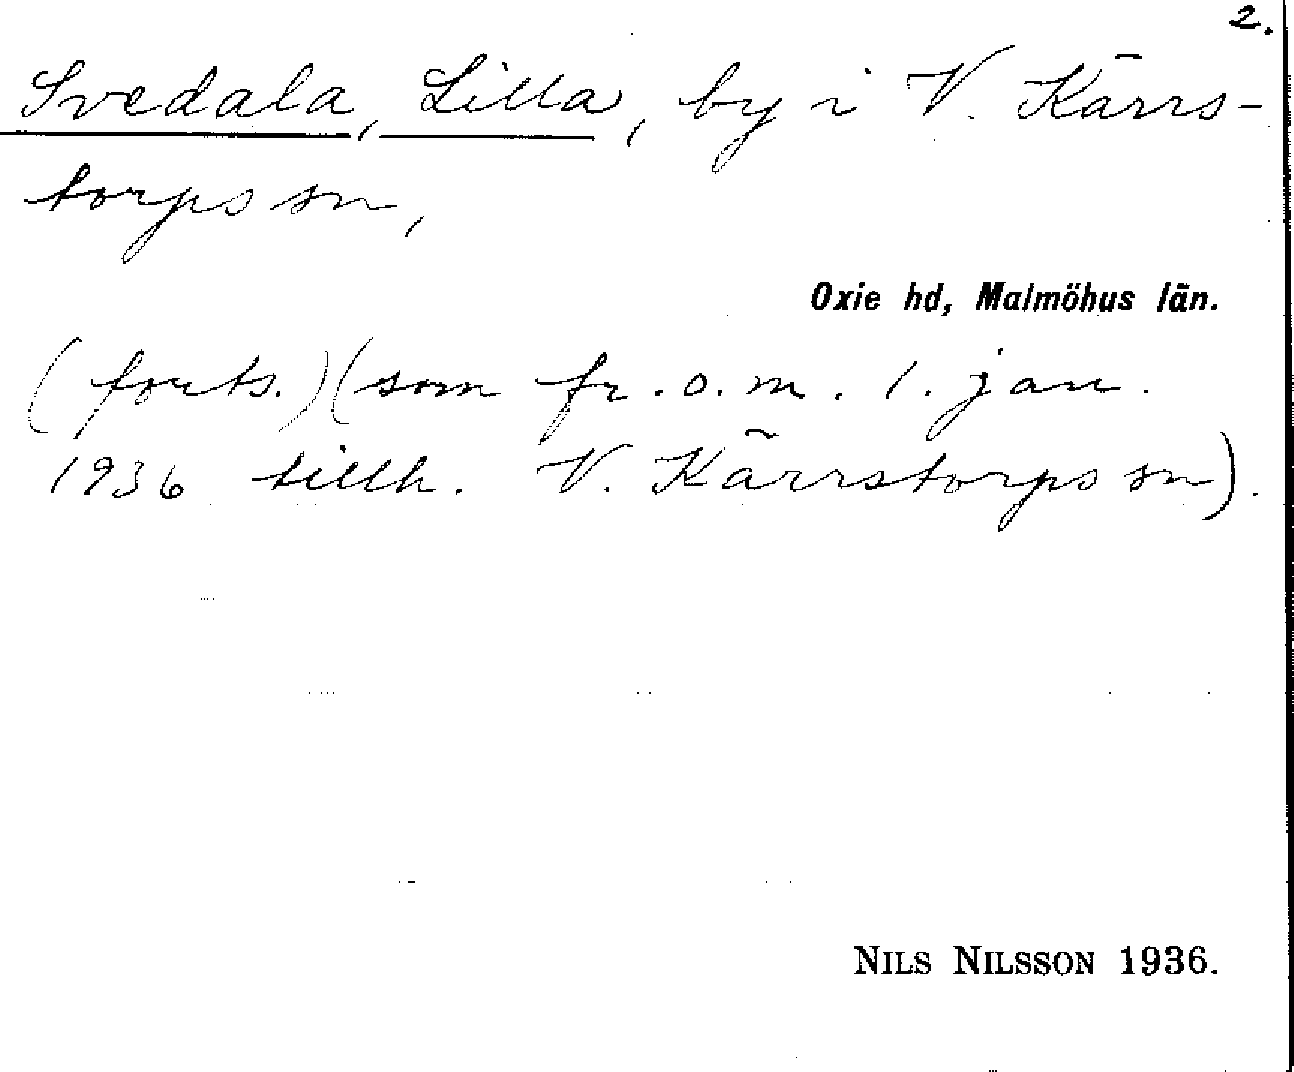 2.
Svedala, Lilla, by i V. Kärrs-
torps sn,
Oxie hd, Malmöhus län.
(forts.) (som fr.o.m. 1. jan.
1936 tillh. V. Kärrstorps sn).
NILS NILSSON 1936.